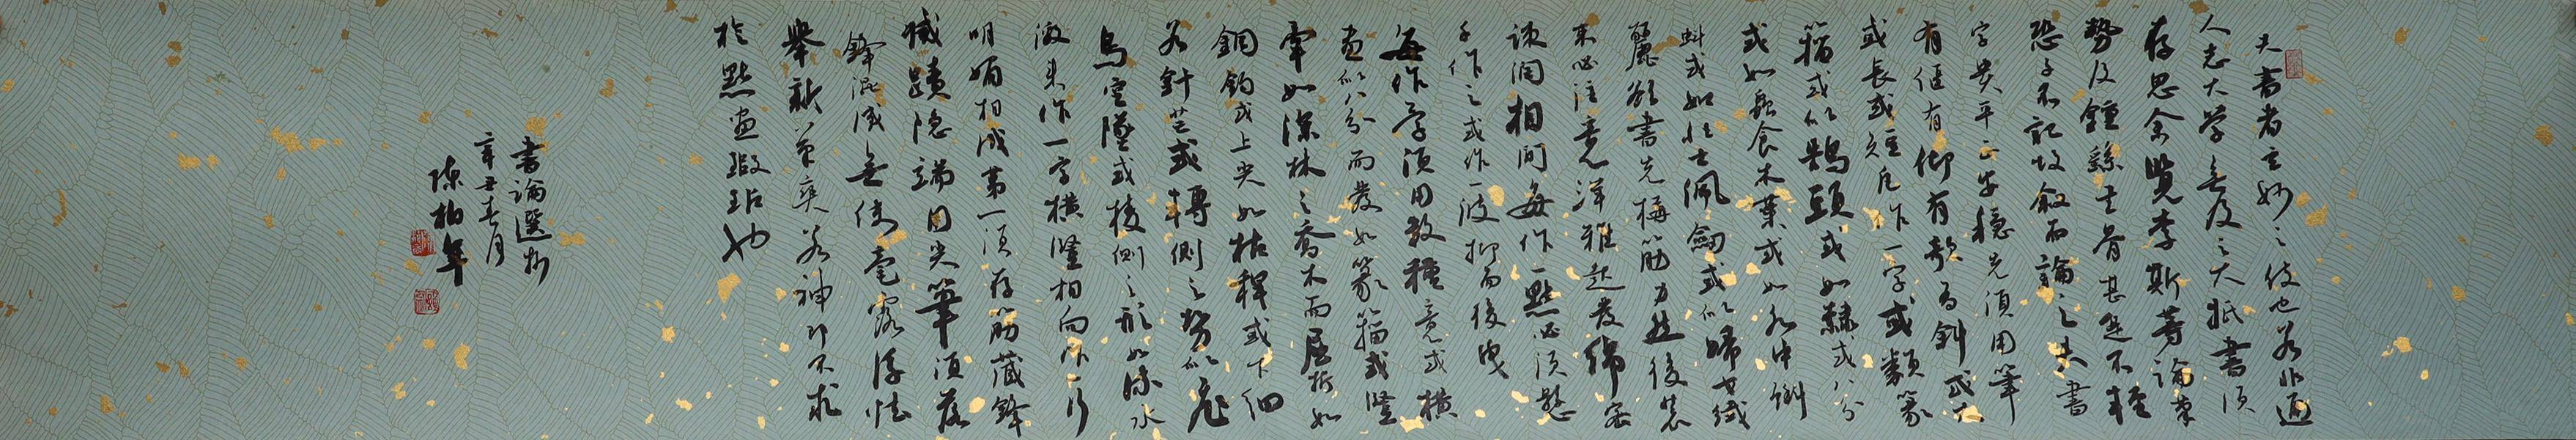 夫書者玄妙之伎也若非通
人志大學無及之大抵書須
存思余覽李斯等論筆
勢及鍾繇書骨甚是不輕
恐子不記故敘而論之夫書
字貴平正安穩先須用筆
有偃有仰有欹有斜或大
或長或短凡作一字或類篆
籀或似鵠頭或如隸或八分
或如蟲食木葉或如水中蝌
蚪或如壯士佩劍或似婦女纖
麗欲書先構筋力然後裝
束必注意詳雅起發綿密
疎闊相間每作一點必須懸
手作之或作一波抑而後曳
每作一字須用數種意或橫
畫似八分而發如篆籀或豎
牽如深林之喬木而屈折如
鋼鉤或上尖如枯稈或下細
若針芒或轉側之勢似飛
鳥空墜或棱側之形如流水
激來作一字橫豎相向作一行
明媚相成第一須存筋藏鋒
滅蹟隱端用尖筆須落
鋒混成無使毫露浮怯
舉新筆爽若神即不求
於點畫瑕玷也
書論選抄
辛丑春月
陳柏年